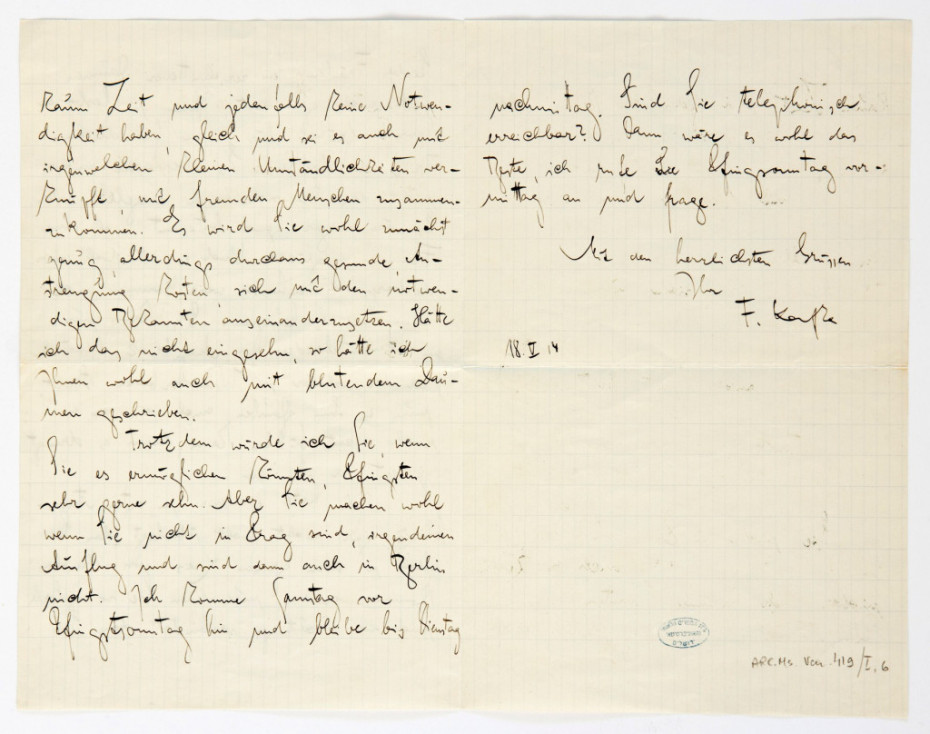 kaum Zeit und jedenfalls keine Notwen-
digkeit haben, gleich und sei es auch mit
irgendwelchen kleinen Umständlichkeiten ver-
knüpft mit fremden Menschen zusammen-
zukommen. Es wird Sie wohl zunächst
genug, allerdings durchaus gesunde, An-
strengung kosten, sich mit den notwen-
digen Bekannten auseinanderzusetzen. Hätte
ich das nicht eingesehn, so hätte ich
Ihnen wohl auch mit blutendem Dau-
men geschrieben.
Trotzdem würde ich Sie, wenn
Sie es ermöglichen könnten, Pfingsten
sehr gerne sehn. Aber Sie machen wohl
wenn Sie nicht in Prag sind, irgendeinen
Ausflug und sind dann auch in Berlin
nicht. Ich komme Samstag vor
Pfingstsonntag hin und bleibe bis Dienstag
nachmittag. Sind Sie telephonisch
erreichbar? Dann wäre es wohl das
Beste, ich rufe Sie Pfingsonntag vor-
mittag an und frage.
Mit den herzlichsten Grüssen
Ihr
F. Kafka
18.V 14
ARC. Ms. Var. 419/I, 6